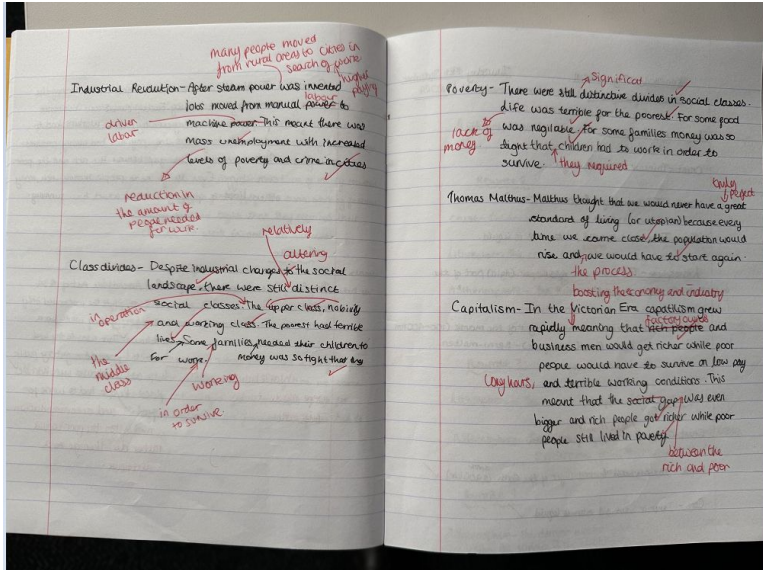 many people moved
from rural areas to cities in
search of more
highest
paying
Industrial Revolution - After steam power was invented
labour
jobs moved from manual power to
driven
labor
machine power. This meant there was
mass unemployment with increased
levels of poverty and crime in cities
reduction in
the amount of
people needed
for work.
relatively
altering
Class divides - Despite industrial changed to the social
landscape, there were still distinct
in operation
social classes. The upper class, nobility
and working class. The poorest had terrible
lives. Some families needed their children to
for work. money was so tight that they
the
middle
class
working
in order
to survive.
significat
Poverty - There were still distinctive divides in social classes.
life was terrible for the poorest. For some food
lack of
money
was negliable. For some families money was so
tight that children had to work in order to
survive.
they required
truly
perfect
Thomas Malthus - Malthus thought that we would never have a great
standard of living (or utopian) because every
time we come close, the population would
rise and we would have to start again.
the process.
boosting the economy and industry
Capitalism - In the Victorian Era capatilism grew
factory owners
rapidly meaning that rich people and
business men would get richer while poor
people would have to survive on low pay
long hours, and terrible working conditions. This
meant that the social gap was even
bigger and rich people got richer while poor
people still lived in poverty.
between the
rich and poor